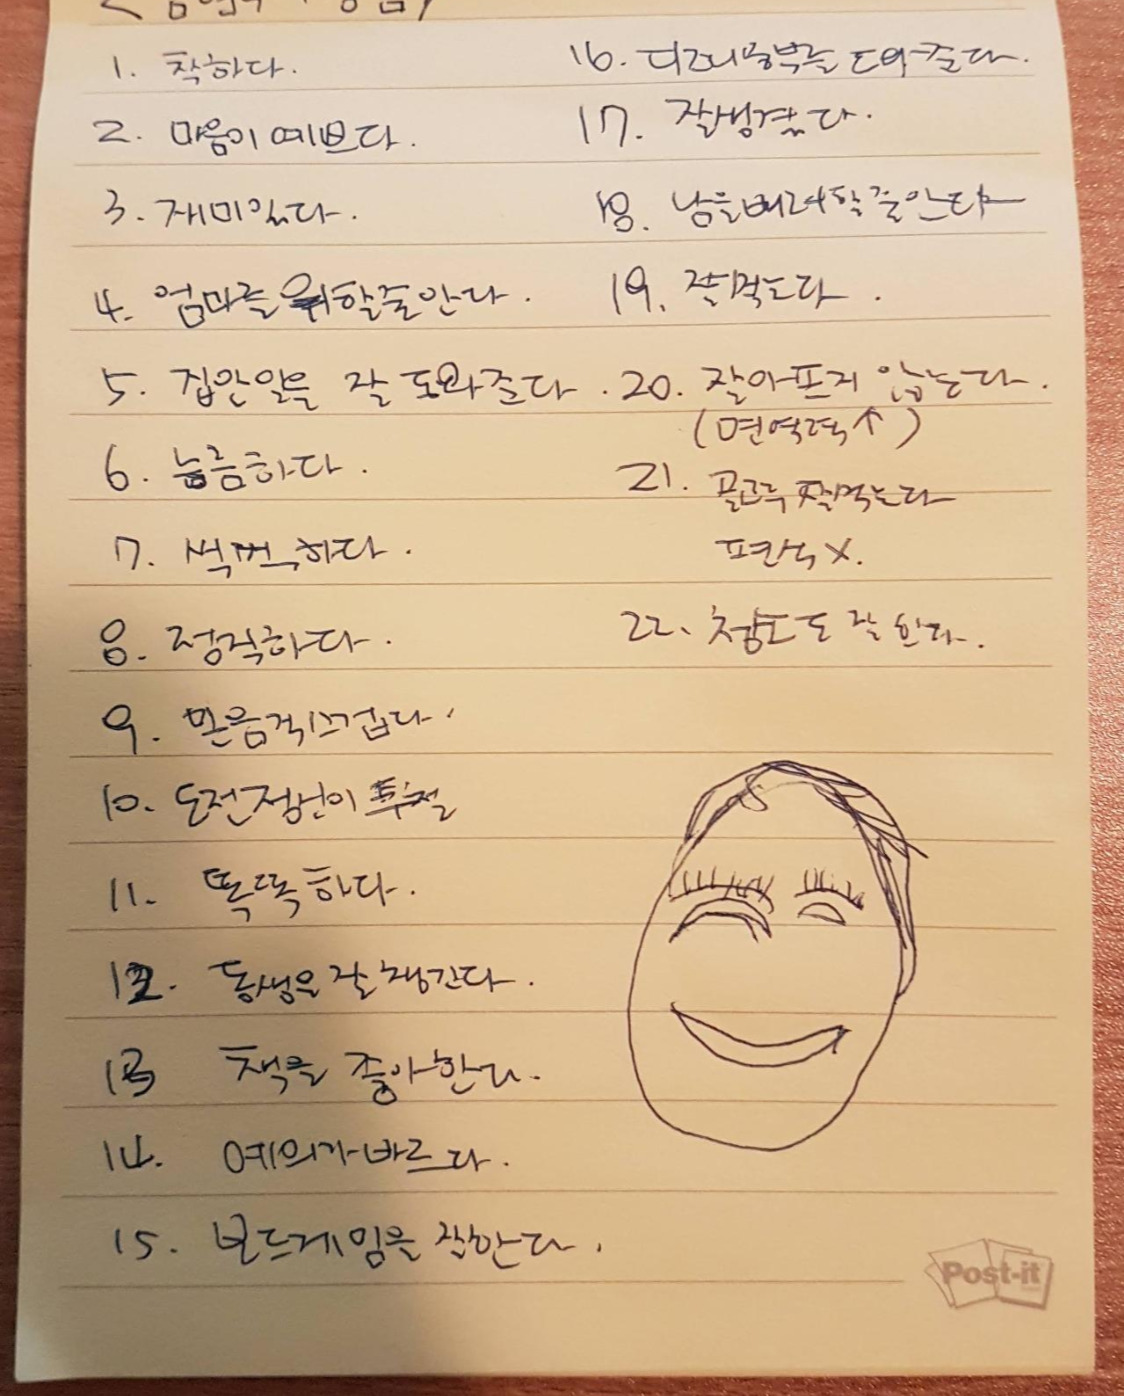 1. 착하다.
2. 마음이 예쁘다.
3. 재미있다.
4. 엄마를 위할줄안다.
5. 집안일을 잘 도와준다.
6. 늠름하다.
7. 씩씩하다.
8. 정직하다.
9. 믿음직스럽다.
10. 도전정신이 투철
11. 똑똑하다.
12. 동생을 잘 챙긴다.
13 책을 좋아한다.
14. 예의가 바르다.
15. 보드게임을 잘한다.
16. 공부를 도와준다.
17. 잘생겼다.
18. 남을 배려할 줄 안다
19. 잘먹는다.
20. 잘아프지 않는다.
(면역력↑)
21. 골고루 잘먹는다
편식 X.
22. 청소도 잘한다.
Post-it